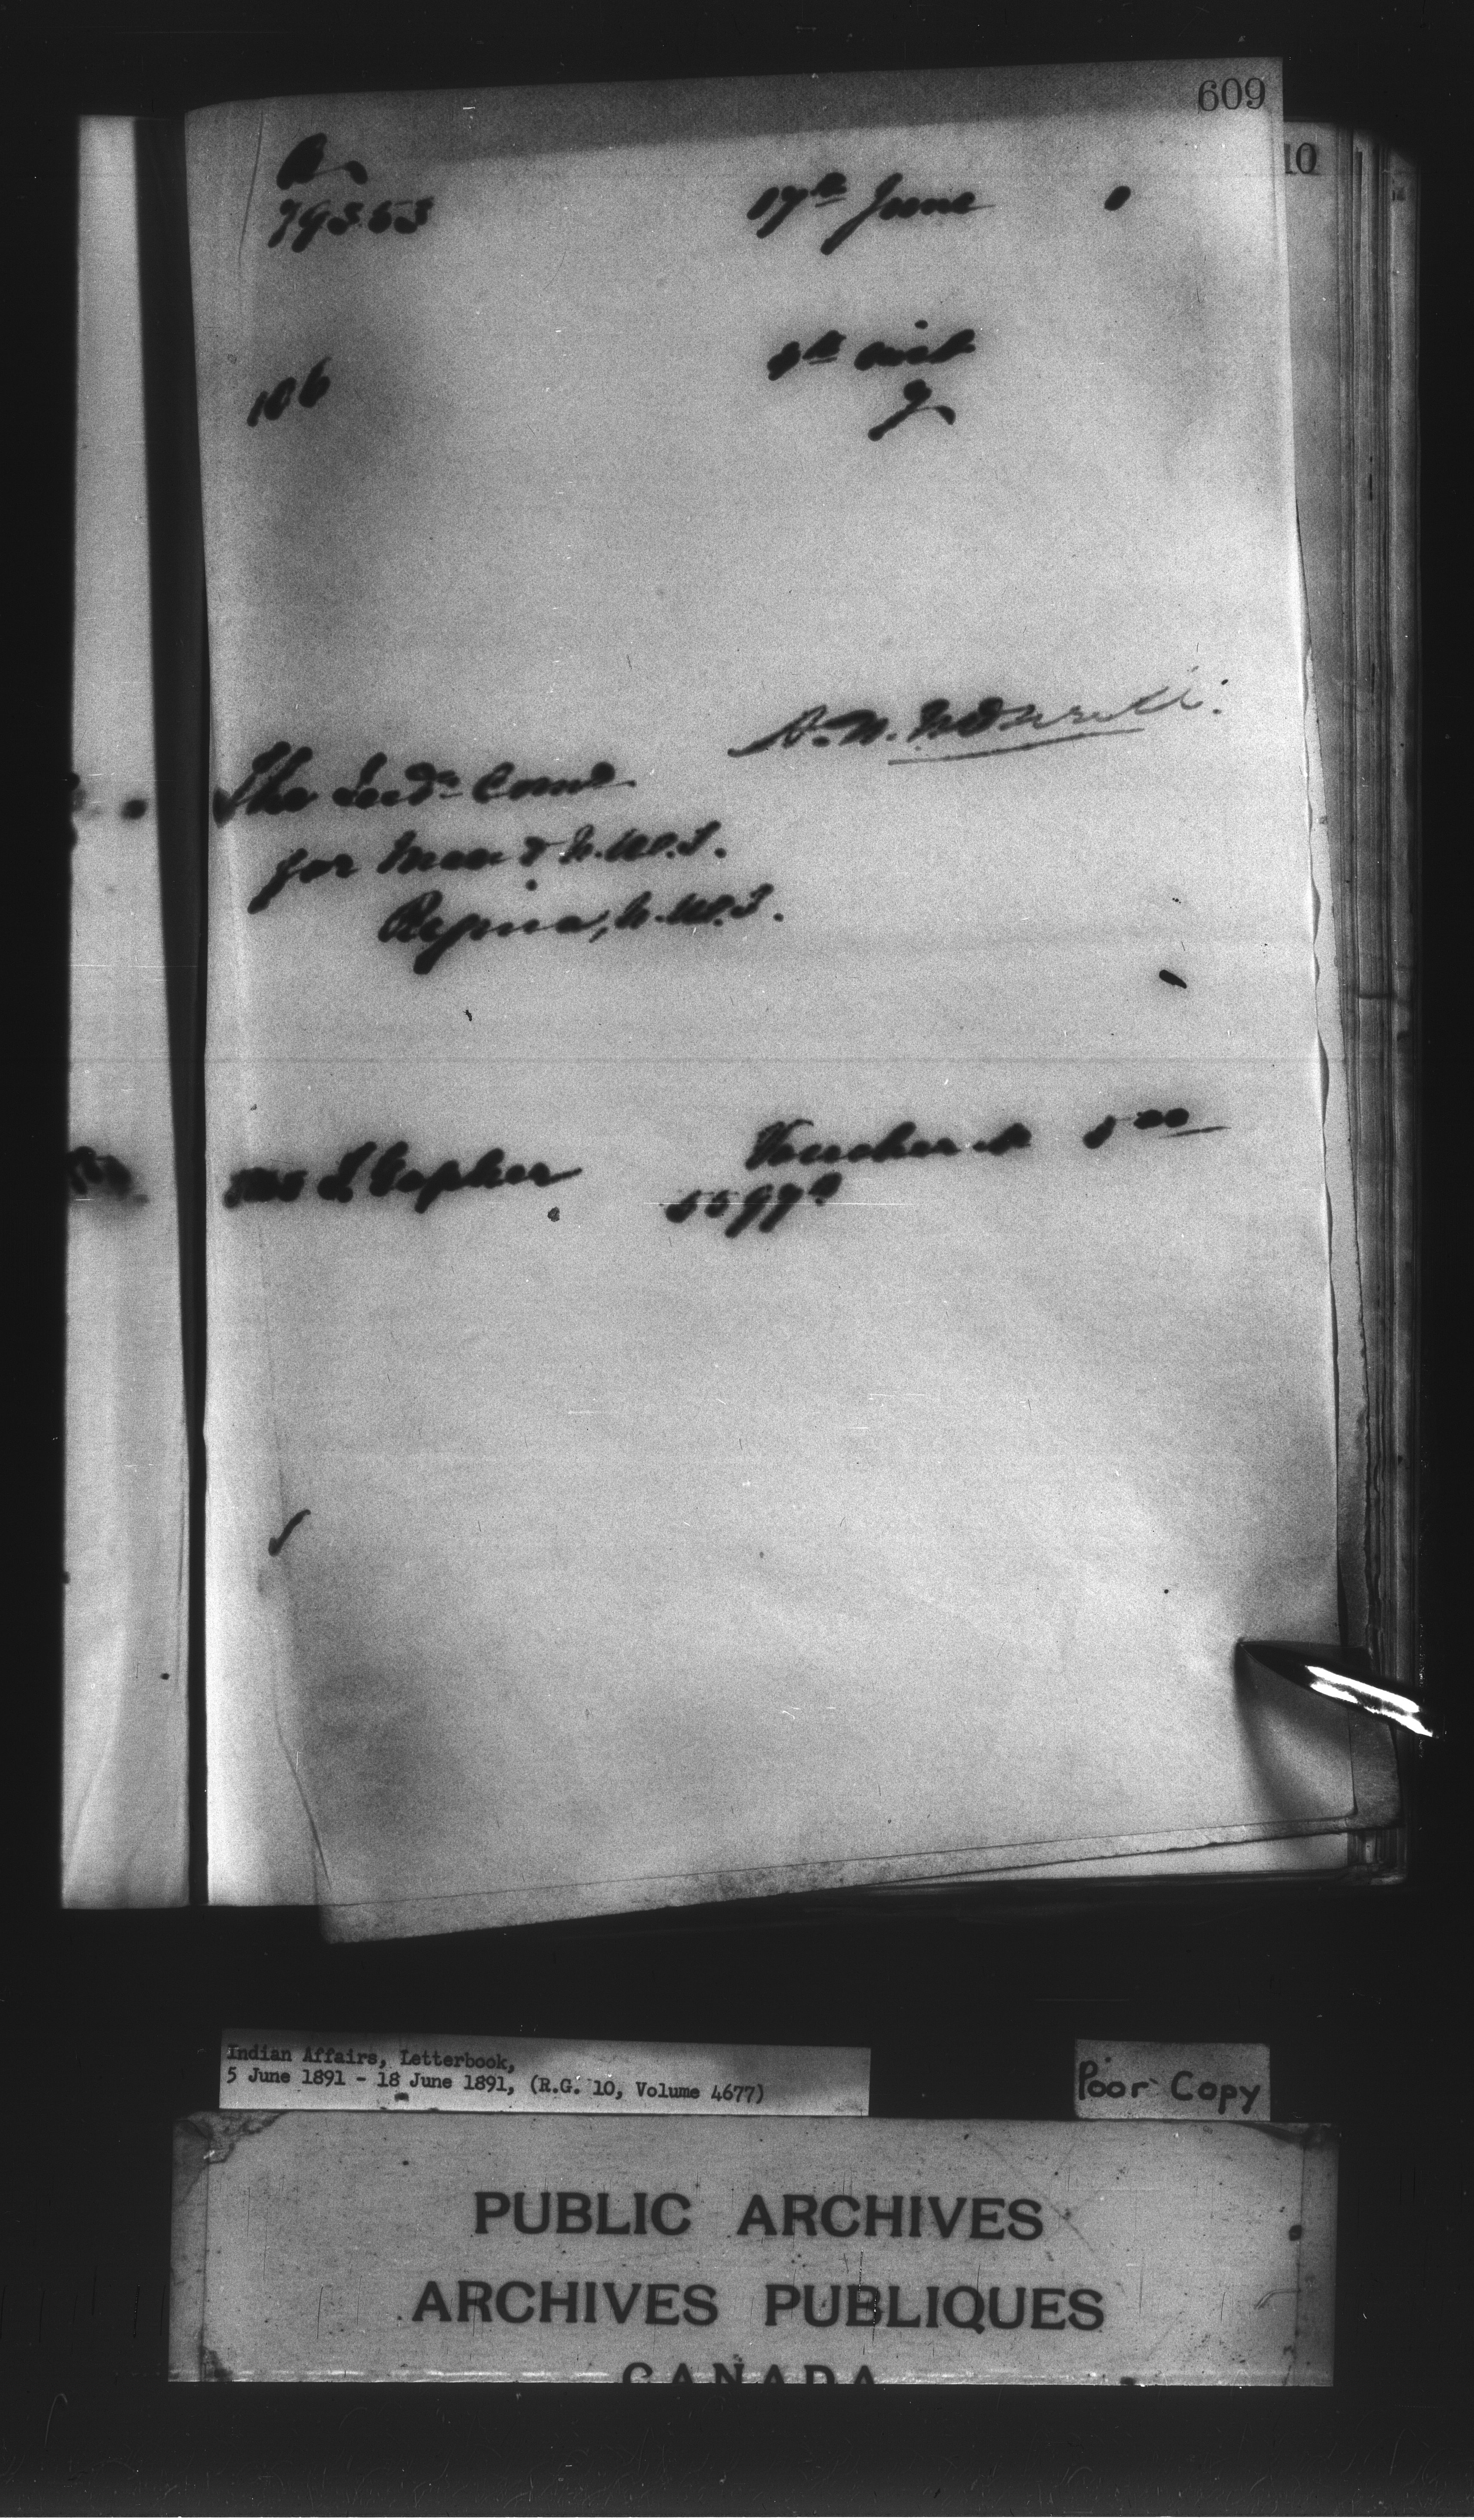 609
10
79353
17th June 1
106
4th inst
The Ind: Comr
for Man & N.W.T.
Regina, N.W.T.
Voucher 5 00
5597
Indian Affairs, Letterbook,
5 June 1891 - 18 June 1891, (R.G. 10, Volume 4677)
Poor Copy
PUBLIC ARCHIVES
ARCHIVES PUBLIQUES
CANADA